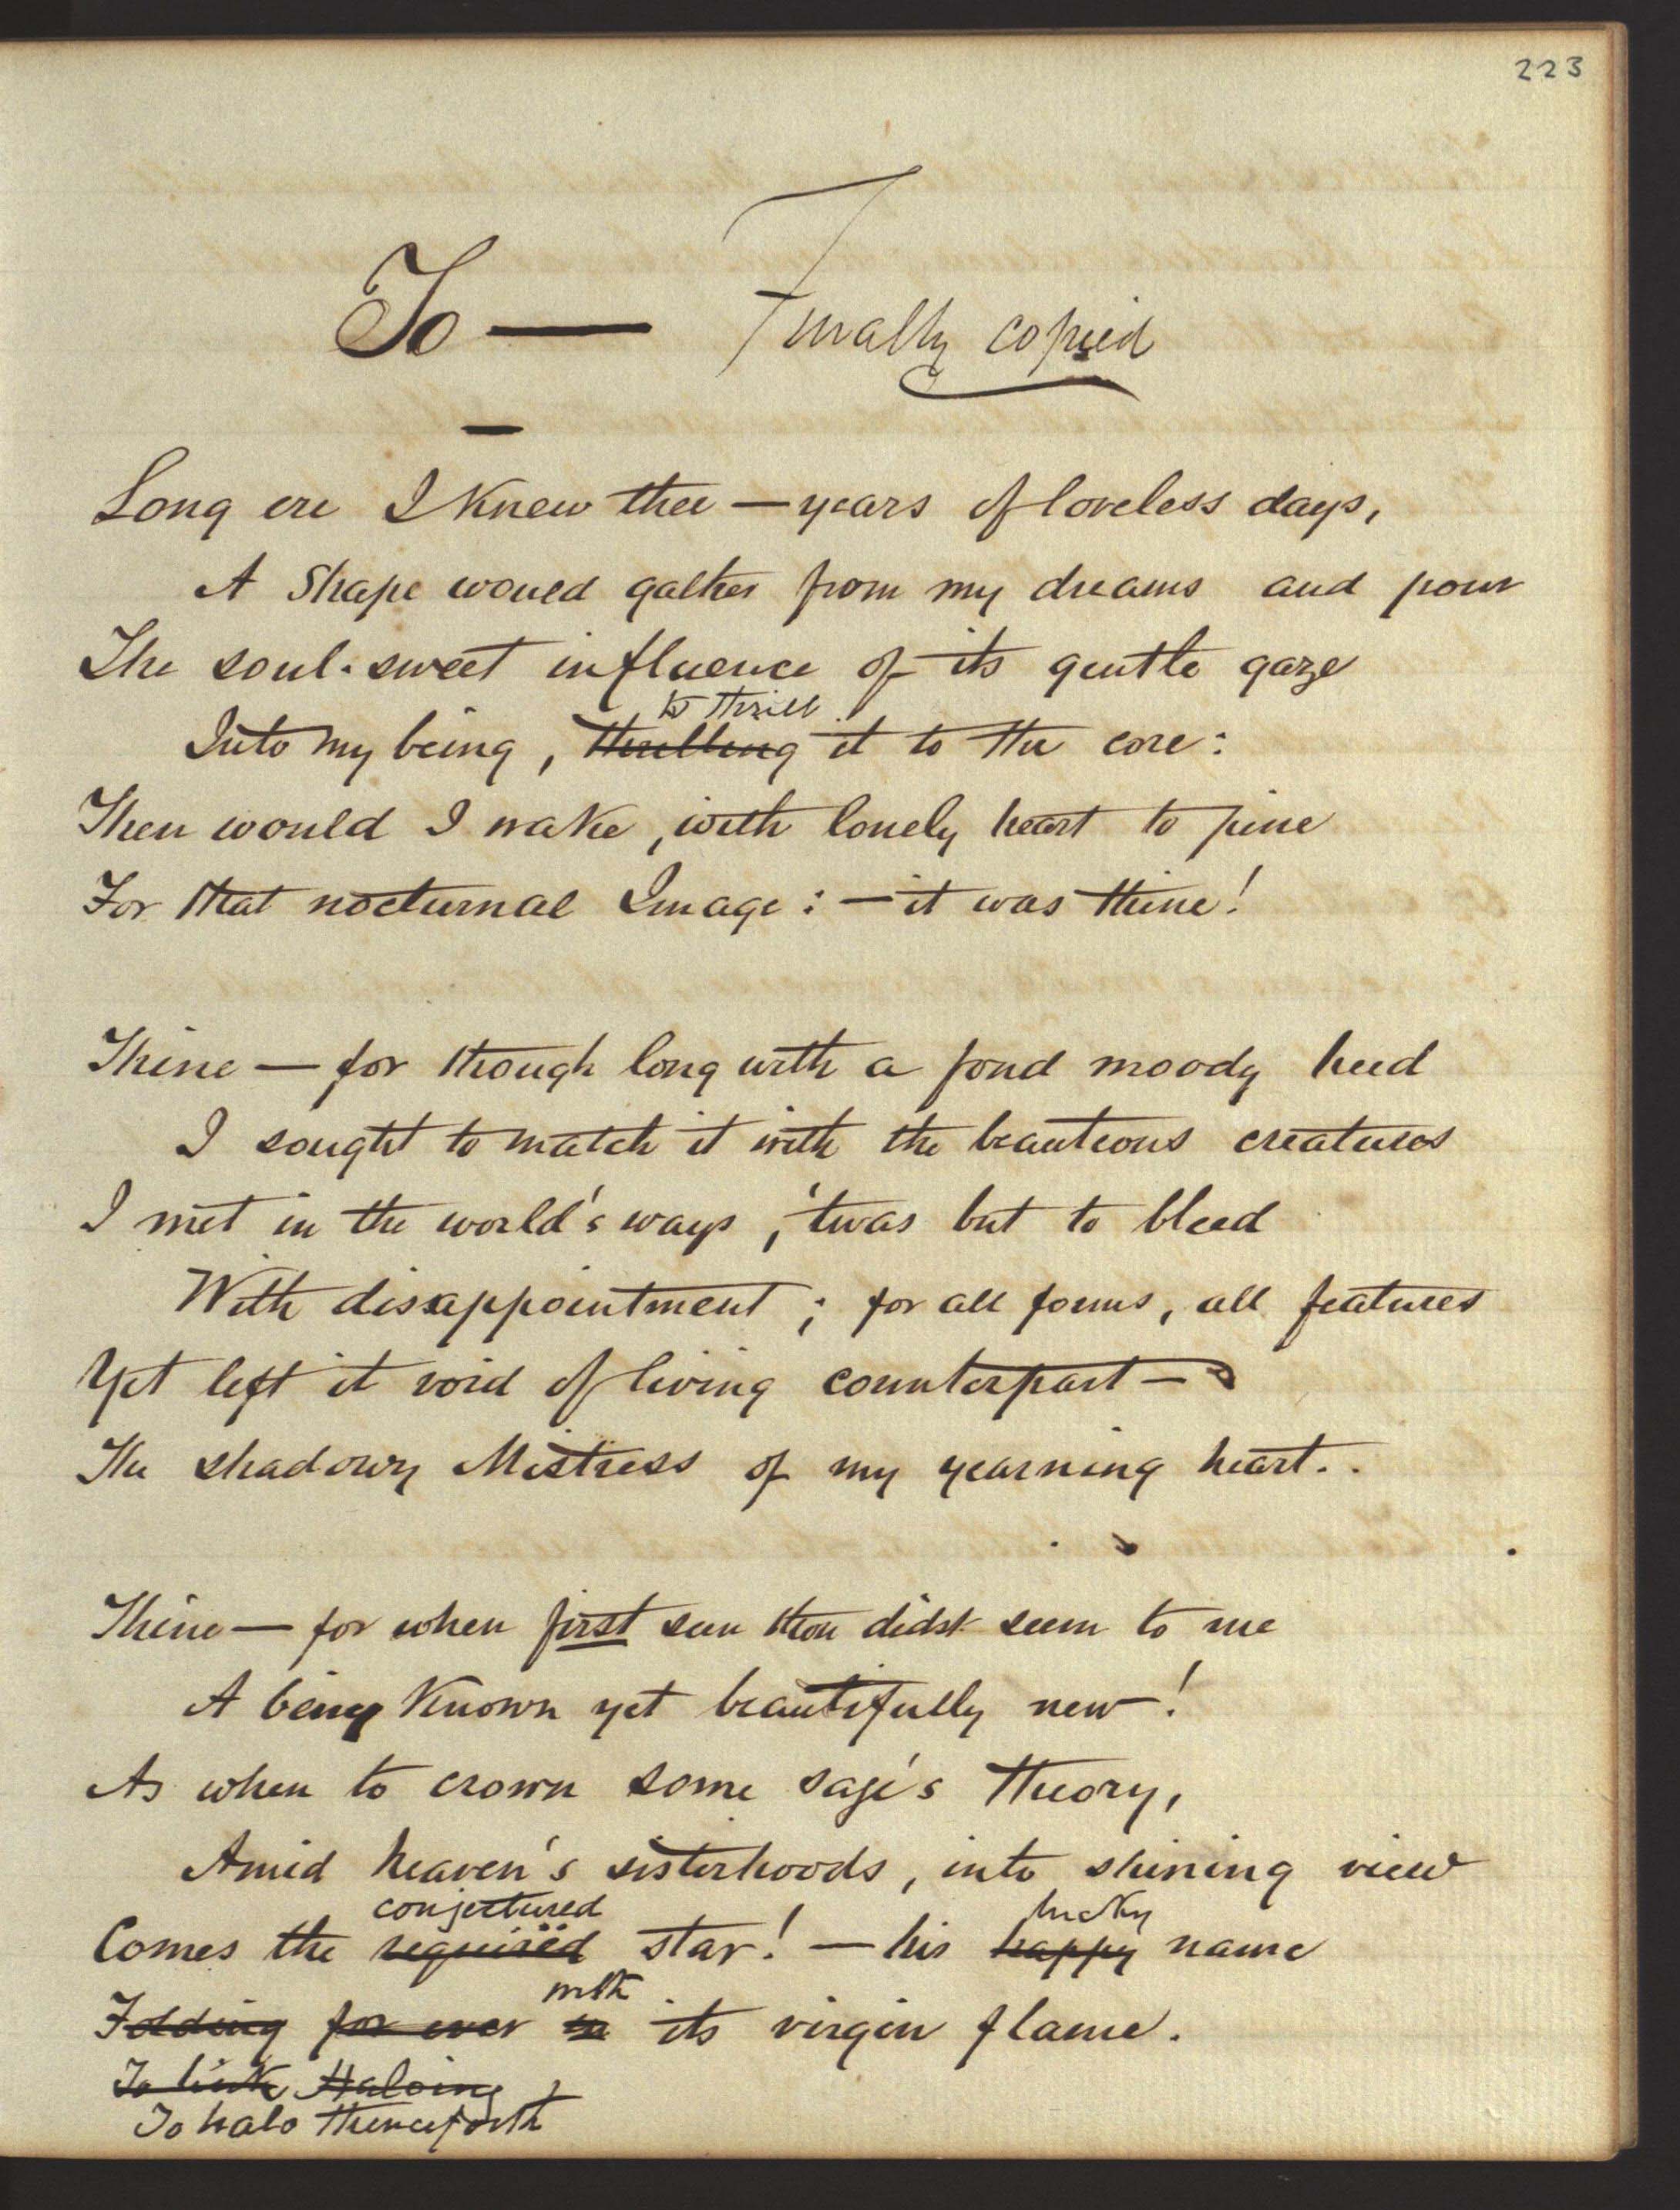 223
To — Finally copied
Long ere I knew thee — years of loveless days,
A Shape would gather from my dreams and pour
The soul-sweet influence of its gentle gaze
to thrill
Into my being, thrilling it to the core:
Then would I wake, with lonely heart to pine
For that nocturnal Image: — it was thine!
Thine — for though long with a fond moody heed
I sought to match it with the beauteous creatures
I met in the world's ways, 'twas but to bleed
With disappointment; for all forms, all features
Yet left it void of living counterpart —
The shadowy Mistress of my yearning heart..
Thine — for when first seen thou didst seem to me
A being known yet beautifully new!
As when to crown some sage's theory,
Amid heaven's sisterhoods, into shining view
conjectured lucky
Comes the required star! — his happy name
with
Folding for ever in its virgin flame.
To link Haloing
To halo thenceforth